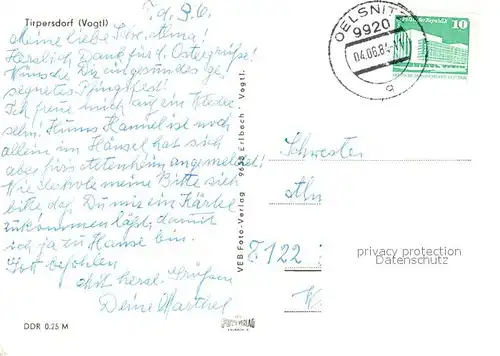 Tirpersdorf (Vogtl)
Td, 3.6.
Meine liebe Schw. Alma!
Herzlich Dank für d. Ostergrüße!
Wünsche Dir ein gesundes ge-
segnetes Pfingstfest!
Ich freue mich auf ein Wieder-
sehn! Hanna Hammel ist noch
allein im Häusel hat sich
aber fürs Altenheim angemeldet!
Wiederhole meine Bitte sieh
bitte daß Du mir ein Kärtel
zukommen läßt, damit
ich ja zu Hause bin.
Gott befohlen
Mit herzl. Grüßen
Deine Marthel
DDR 0,25 M
VEB Foto-Verlag 9658 Erlbach Vogtl.
FOTO VERLAG
OELSNITZ
9920
04.06.84
a
10
Schwester
Alm
7122
privacy protection
Datenschutz